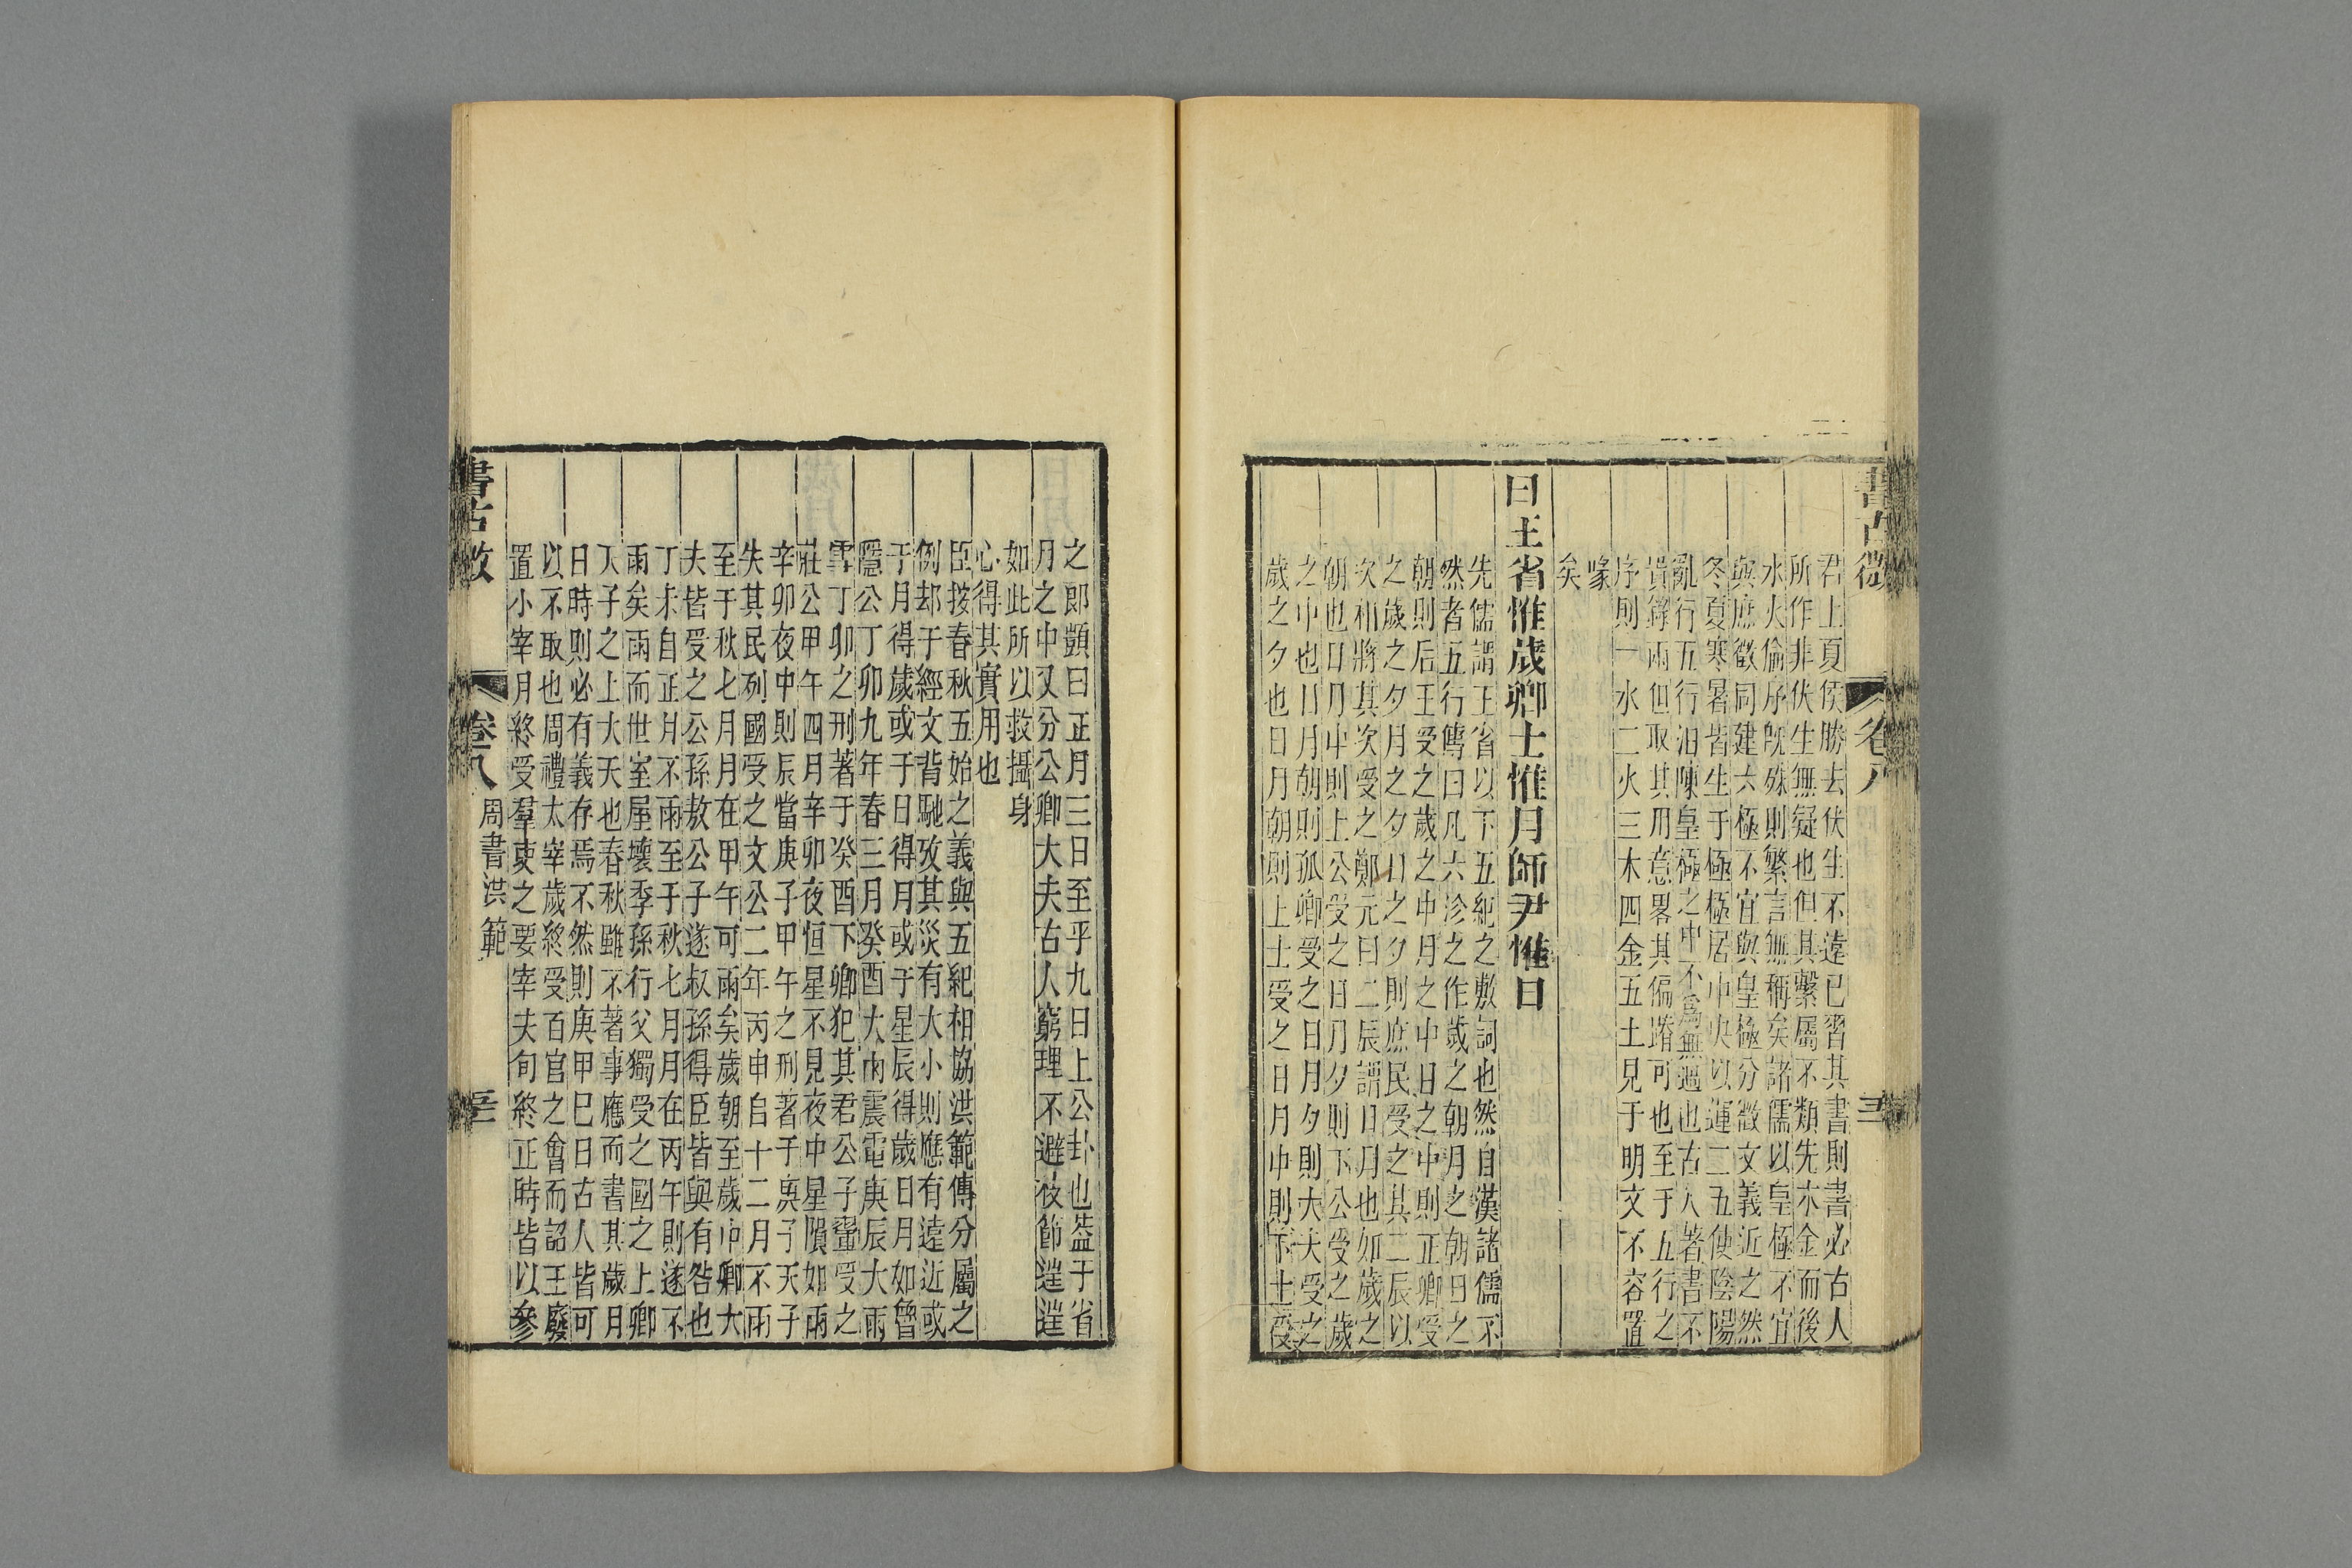 書古微
卷八
君上夏侯勝去伏生不遠已習其書則書必古人
所作非伏生無疑也但其繫屬不類先木金而後
水火倫序旣殊則繁言無稱矣諸儒以皇極不宜
與庶徵同建六極不宜與皇極分徵文義近之然
冬夏寒暑皆生于極極居中央以運二五使陰陽
亂行五行汨陳皇極之中不爲無過也古人著書不
貴鎽兩但取其用意畧其偏踳可也至于五行之
序則一水二火三木四金五土見于明文不容置
喙
矣
曰王省惟歲卿士惟月師尹惟日
先儒謂王省以下五紀之敷詞也然自漢諸儒不
然者五行傳曰凡六沴之作歲之朝月之朝日之
朝則后王受之歲之中月之中日之中則正卿受
之歲之夕月之夕日之夕則庶民受之其二辰以
次相將其次受之鄭元曰二辰謂日月也如歲之
朝也日月中則上公受之日月夕則下公受之歲
之中也日月朝則孤卿受之日月夕則大夫受之
歲之夕也日月朝則上士受之日月中則下士受
之郎顗曰正月三日至乎九日上公卦也葢于省
月之中又分公卿大夫古人窮理不避枝節遑遑
如此所以救攝身
心得其實用也
臣按春秋五始之義與五紀相協洪範傳分屬之
例却于經文背馳攷其災有大小則應有遠近或
于月得歲或于日得月或于星辰得歲日月如魯
隱公丁卯九年春三月癸酉大雨震電庚辰大雨
雪丁卯之刑著于癸酉下卿犯其君公子翬受之
莊公甲午四月辛卯夜恒星不見夜中星隕如雨
辛卯夜中則辰當庚子甲午之刑著于庚子天子
失其民列國受之文公二年丙申自十二月不雨
至于秋七月月在甲午可雨矣歲朝至歲中卿大
夫皆受之公孫敖公子遂叔孫得臣皆與有咎也
丁未自正月不雨至于秋七月月在丙午則遂不
雨矣雨而世室屋壞季孫行父獨受之國之上卿
人子之上大天也春秋雖不著事應而書其歲月
日時則必有義存焉不然則庚甲巳日古人皆可
以不取也周禮太宰歲終受百官之會而詔王廢
置小宰月終受羣吏之要宰夫旬終正時皆以參
書古微
卷八
周書洪範